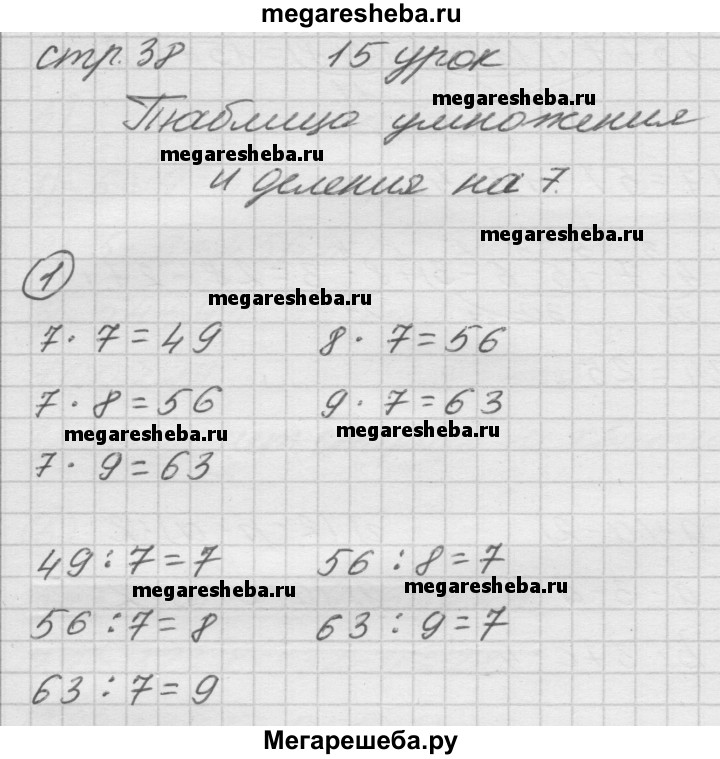 megaresheba.ru
стр. 38 15 урок
megaresheba.ru
Таблица умножения
megaresheba.ru
и деления на 7.
megaresheba.ru
1
megaresheba.ru
7 · 7 = 49 8 · 7 = 56
7 · 8 = 56 9 · 7 = 63
megaresheba.ru megaresheba.ru
7 · 9 = 63
49 : 7 = 7 56 : 8 = 7
megaresheba.ru megaresheba.ru
56 : 7 = 8 63 : 9 = 7
63 : 7 = 9
Мегарешеба.ру